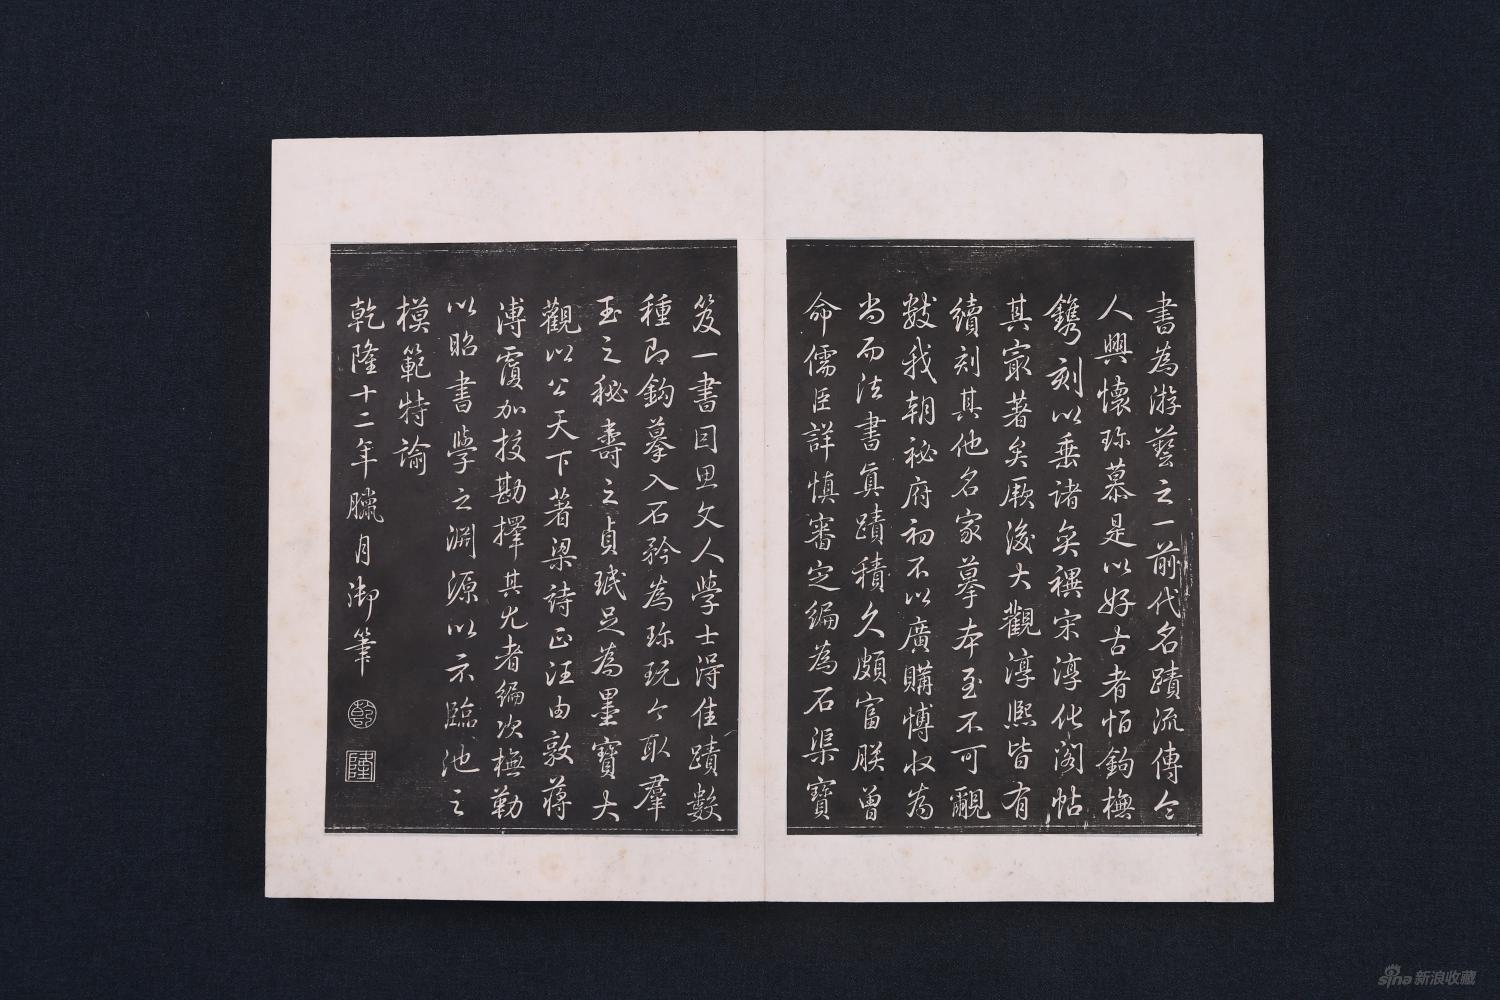 書為游藝之一前代名蹟流傳令
人興懷珎慕是以好古者怕鈎橅
鐫刻以垂諸奕禩宋淳化閣帖
其㝡著矣厥後大觀淳熙皆有
續刻其他名家摹本至不可覼
數我朝祕府初不以廣購博收為
尚而法書真蹟積久頗富朕曾
命儒臣詳慎審定編為石渠寶
笈一書因思文人學士得佳蹟數
種即鈎摹入石矜為珎玩今取羣
玉之秘壽之貞珉足為墨寶大
觀以公天下著梁詩正汪由敦蔣
溥覆加校勘擇其尤者編次橅勒
以昭書學之淵源以示臨池之
模範特諭
乾隆十二年臘月御筆
乾
隆
sina 新浪收藏